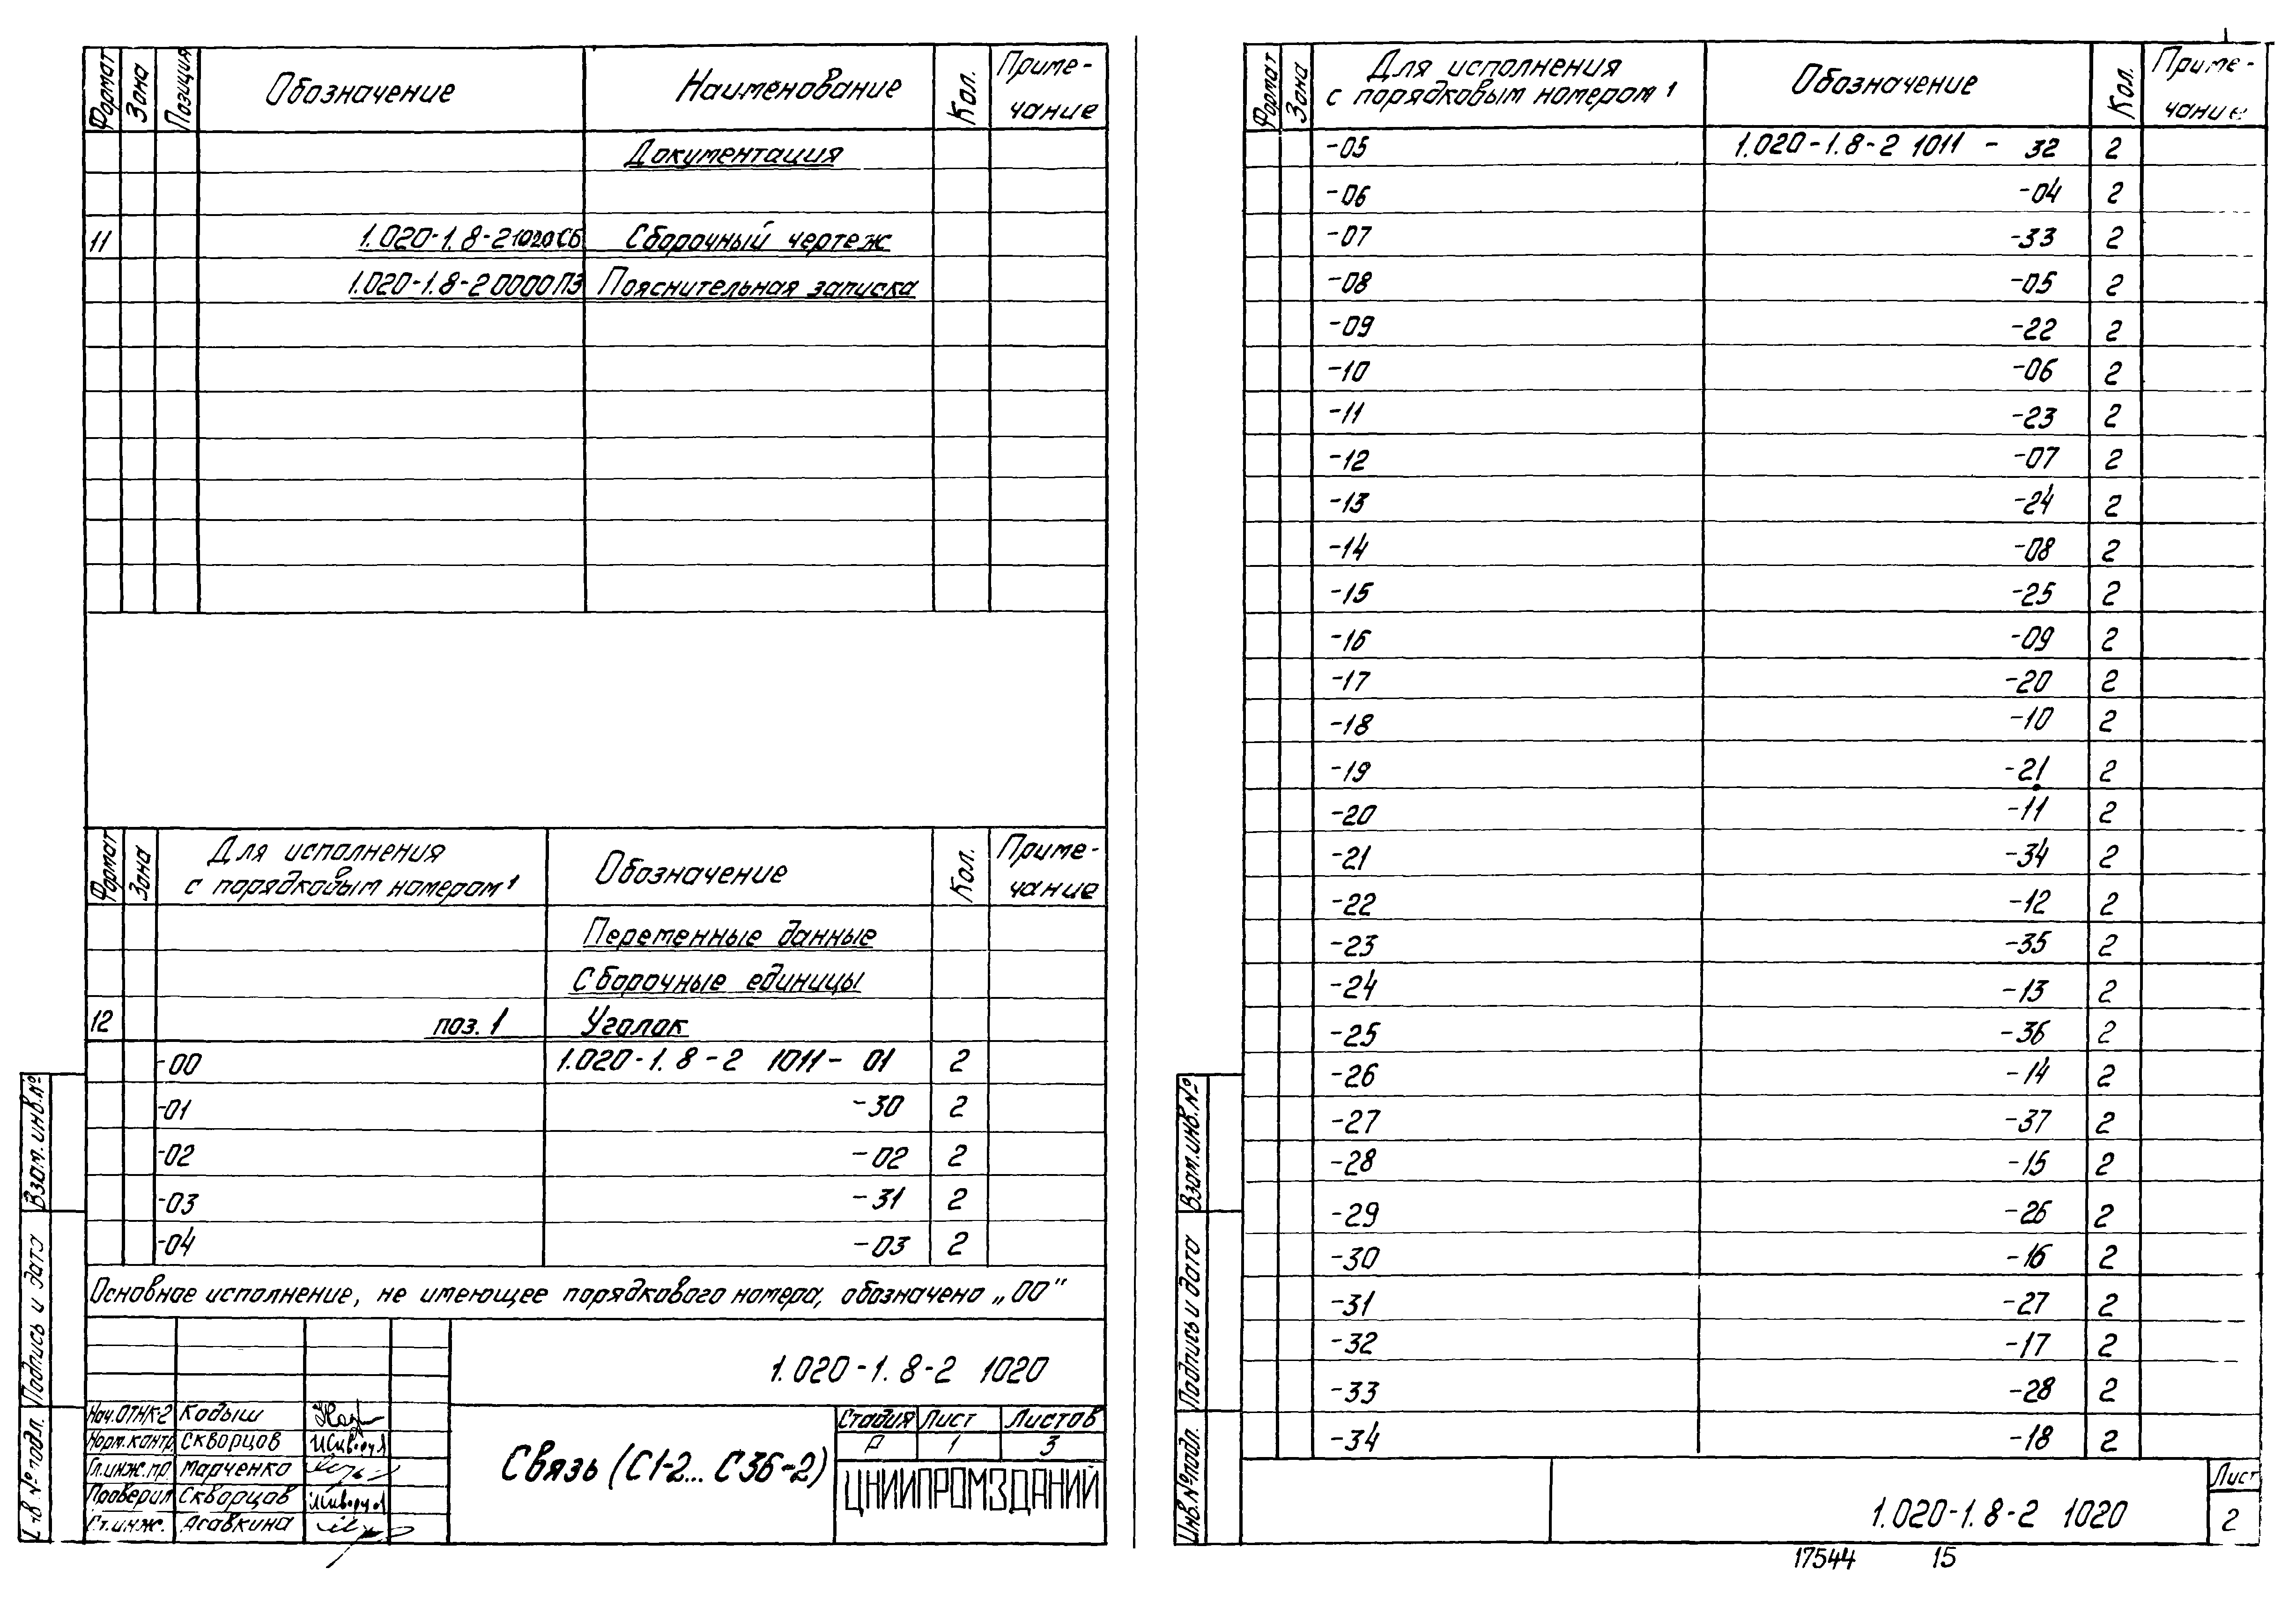 Формат Зона Позиция Обозначение Наименование Кол. Приме-
чание
Документация
11 1.020-1.8-2 1020 СБ Сборочный чертеж
1.020-1.8-2 0000 ПЗ Пояснительная записка
Формат Зона Для исполнения Обозначение Кол. Приме-
с порядковым номером¹ чание
Переменные данные
Сборочные единицы
12 поз. 1 Уголок
-00 1.020-1.8-2 1011- 01 2
-01 -30 2
-02 -02 2
-03 -31 2
-04 -03 2
Основное исполнение, не имеющее порядкового номера, обозначено „00"
1.020-1.8-2 1020
Нач.ОТНК-2 Кодыш
Норм.контр. Скворцов
Гл.инж.пр Марченко
Проверил Скворцов
Ст.инж. Асавкина
Связь (С1-2... С36-2)
Стадия Лист Листов
Р 1 3
ЦНИИПРОМЗДАНИЙ
Взам.инв.№
Подпись и дата
Инв.№ подл.
Формат Зона Для исполнения Обозначение Кол. Приме-
с порядковым номером¹ чание
-05 1.020-1.8-2 1011 - 32 2
-06 -04 2
-07 -33 2
-08 -05 2
-09 -22 2
-10 -06 2
-11 -23 2
-12 -07 2
-13 -24 2
-14 -08 2
-15 -25 2
-16 -09 2
-17 -20 2
-18 -10 2
-19 -21 2
-20 -11 2
-21 -34 2
-22 -12 2
-23 -35 2
-24 -13 2
-25 -36 2
-26 -14 2
-27 -37 2
-28 -15 2
-29 -26 2
-30 -16 2
-31 -27 2
-32 -17 2
-33 -28 2
-34 -18 2
Взам.инв.№
Подпись и дата
Инв.№ подл.
1.020-1.8-2 1020
Лист
2
17544 15